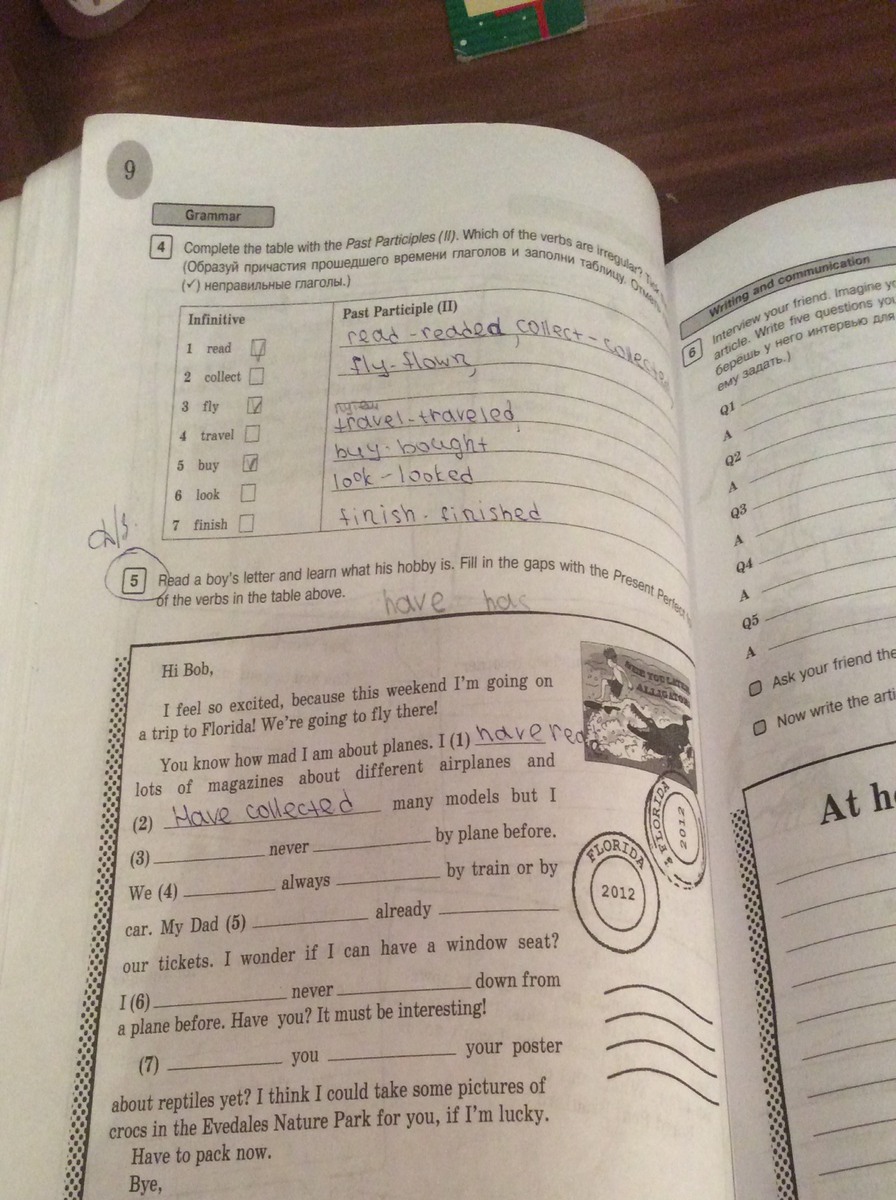 9
Grammar
4 Complete the table with the Past Participles (II). Which of the verbs are irregular?
(Образуй причастия прошедшего времени глаголов и заполни таблицу.
(✓) неправильные глаголы.)
Infinitive Past Participle (II)
1 read ✓ read - readed, collect - collected,
2 collect fly - flown,
3 fly ✓
4 travel travel - traveled,
5 buy ✓ buy - bought
6 look look - looked
7 finish finish - finished
5 Read a boy's letter and learn what his hobby is. Fill in the gaps with the Present Perfect
of the verbs in the table above. have has
Hi Bob,
I feel so excited, because this weekend I'm going on
a trip to Florida! We're going to fly there!
You know how mad I am about planes. I (1) have read
lots of magazines about different airplanes and
(2) Have collected many models but I
(3) never by plane before.
We (4) always by train or by
car. My Dad (5) already
our tickets. I wonder if I can have a window seat?
I (6) never down from
a plane before. Have you? It must be interesting!
(7) you your poster
about reptiles yet? I think I could take some pictures of
crocs in the Evedales Nature Park for you, if I'm lucky.
Have to pack now.
Bye,
SEE YOU LATER
ALLIGATOR
FLORIDA
2012
FLORIDA
2012
Writing and communication
6 Interview your friend. Imagine
article. Write five questions
берёшь у него интервью для
ему задать.)
Q1
A
Q2
A
Q3
A
Q4
A
Q5
A
Ask your friend the
Now write the
At